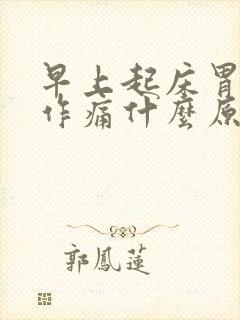 早上起床胃
作痛什麼原
郭鳳蓮